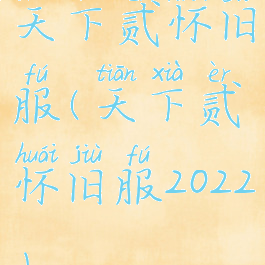 天下贰怀旧
fú tiān xià èr
服(天下贰
huái jiù fú
怀旧服2022
)